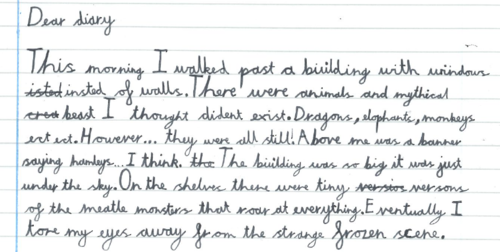 Dear diary
This morning I walked past a building with windows
isted insted of walls. There were animals and mythical
crea beast I thought dident exist. Dragons, elophants, monkeys
ect ect. However... they were all still! Above me was a banner
saying hamleys... I think. the The building was so big it was just
under the sky. On the shelves there were tiny version versons
of the meatle monsters that roar at everything. Eventually I
tore my eyes away from the strange frozen scene.